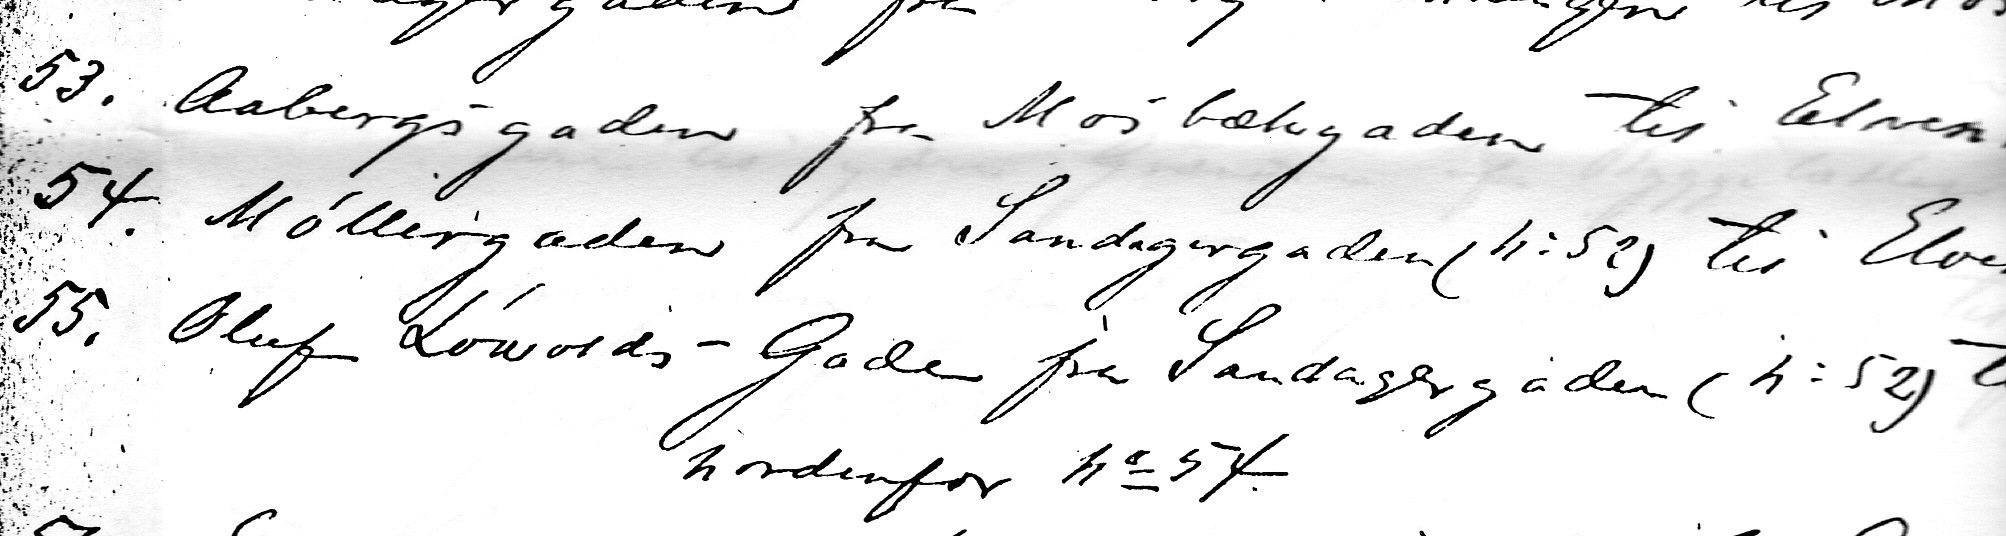 53. Aabergsgaden fra Mosbækgaden til Elven
54. Møllergaden fra Sandagergaden (n: 52) til Elven
55. Oluf Løwolds-Gade fra Sandagergaden (n: 52) t
nordenfor no 54.